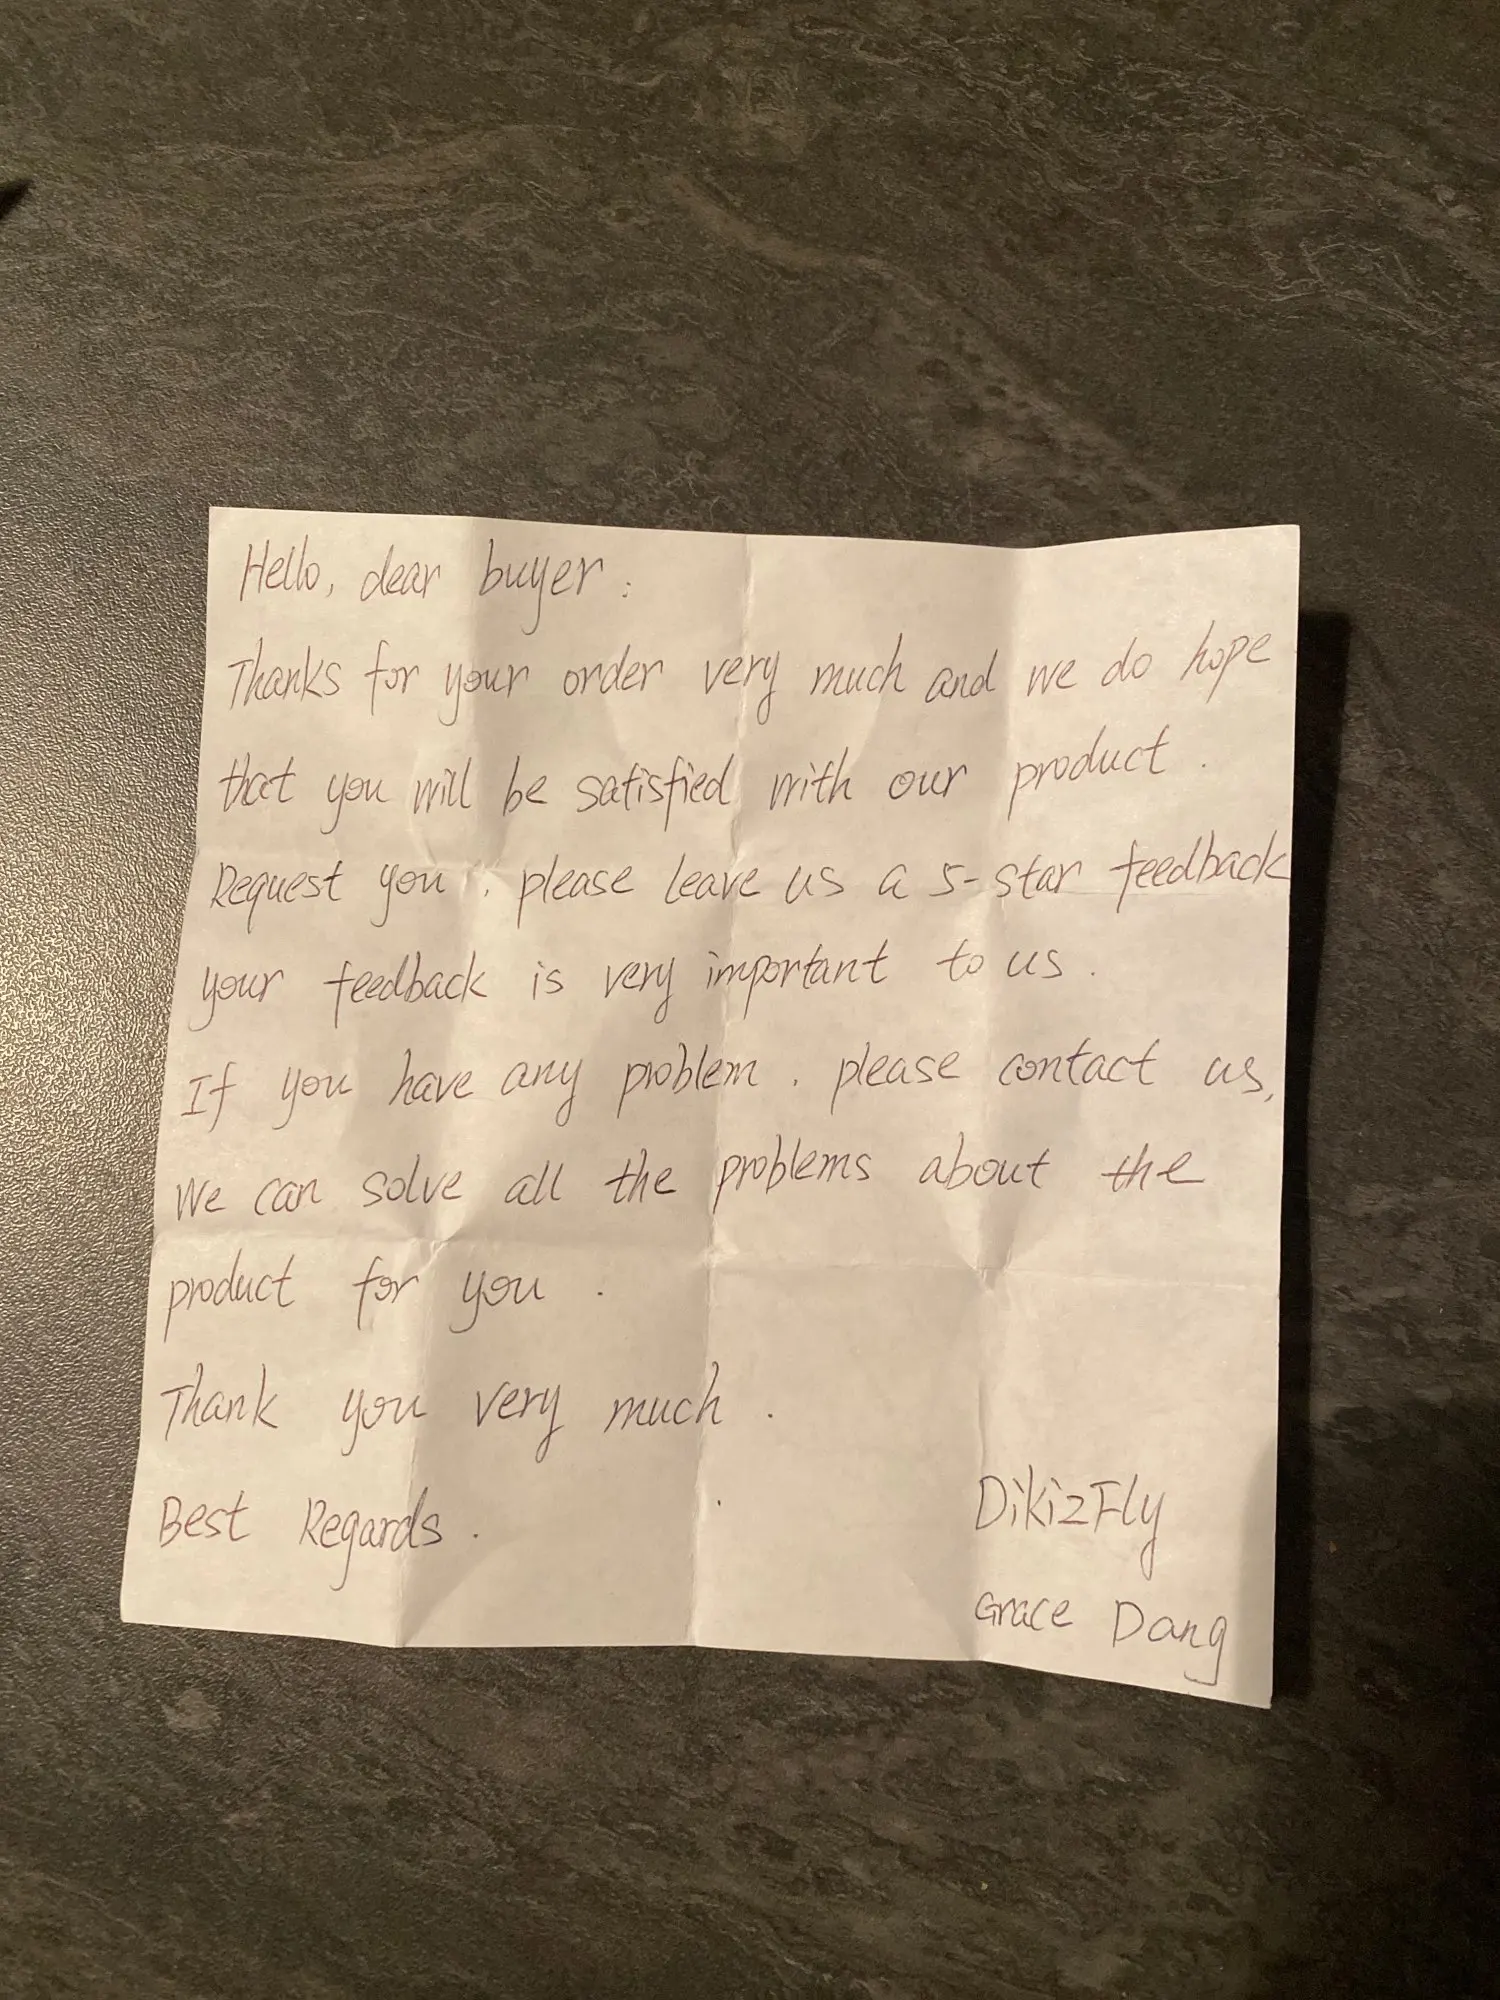 Hello, dear buyer:
Thanks for your order very much and we do hope
that you will be satisfied with our product.
Request you, please leave us a 5-star feedback
your feedback is very important to us.
If you have any problem, please contact us,
We can solve all the problems about the
product for you.
Thank you very much.
Best Regards.
DikizFly
Grace Dang